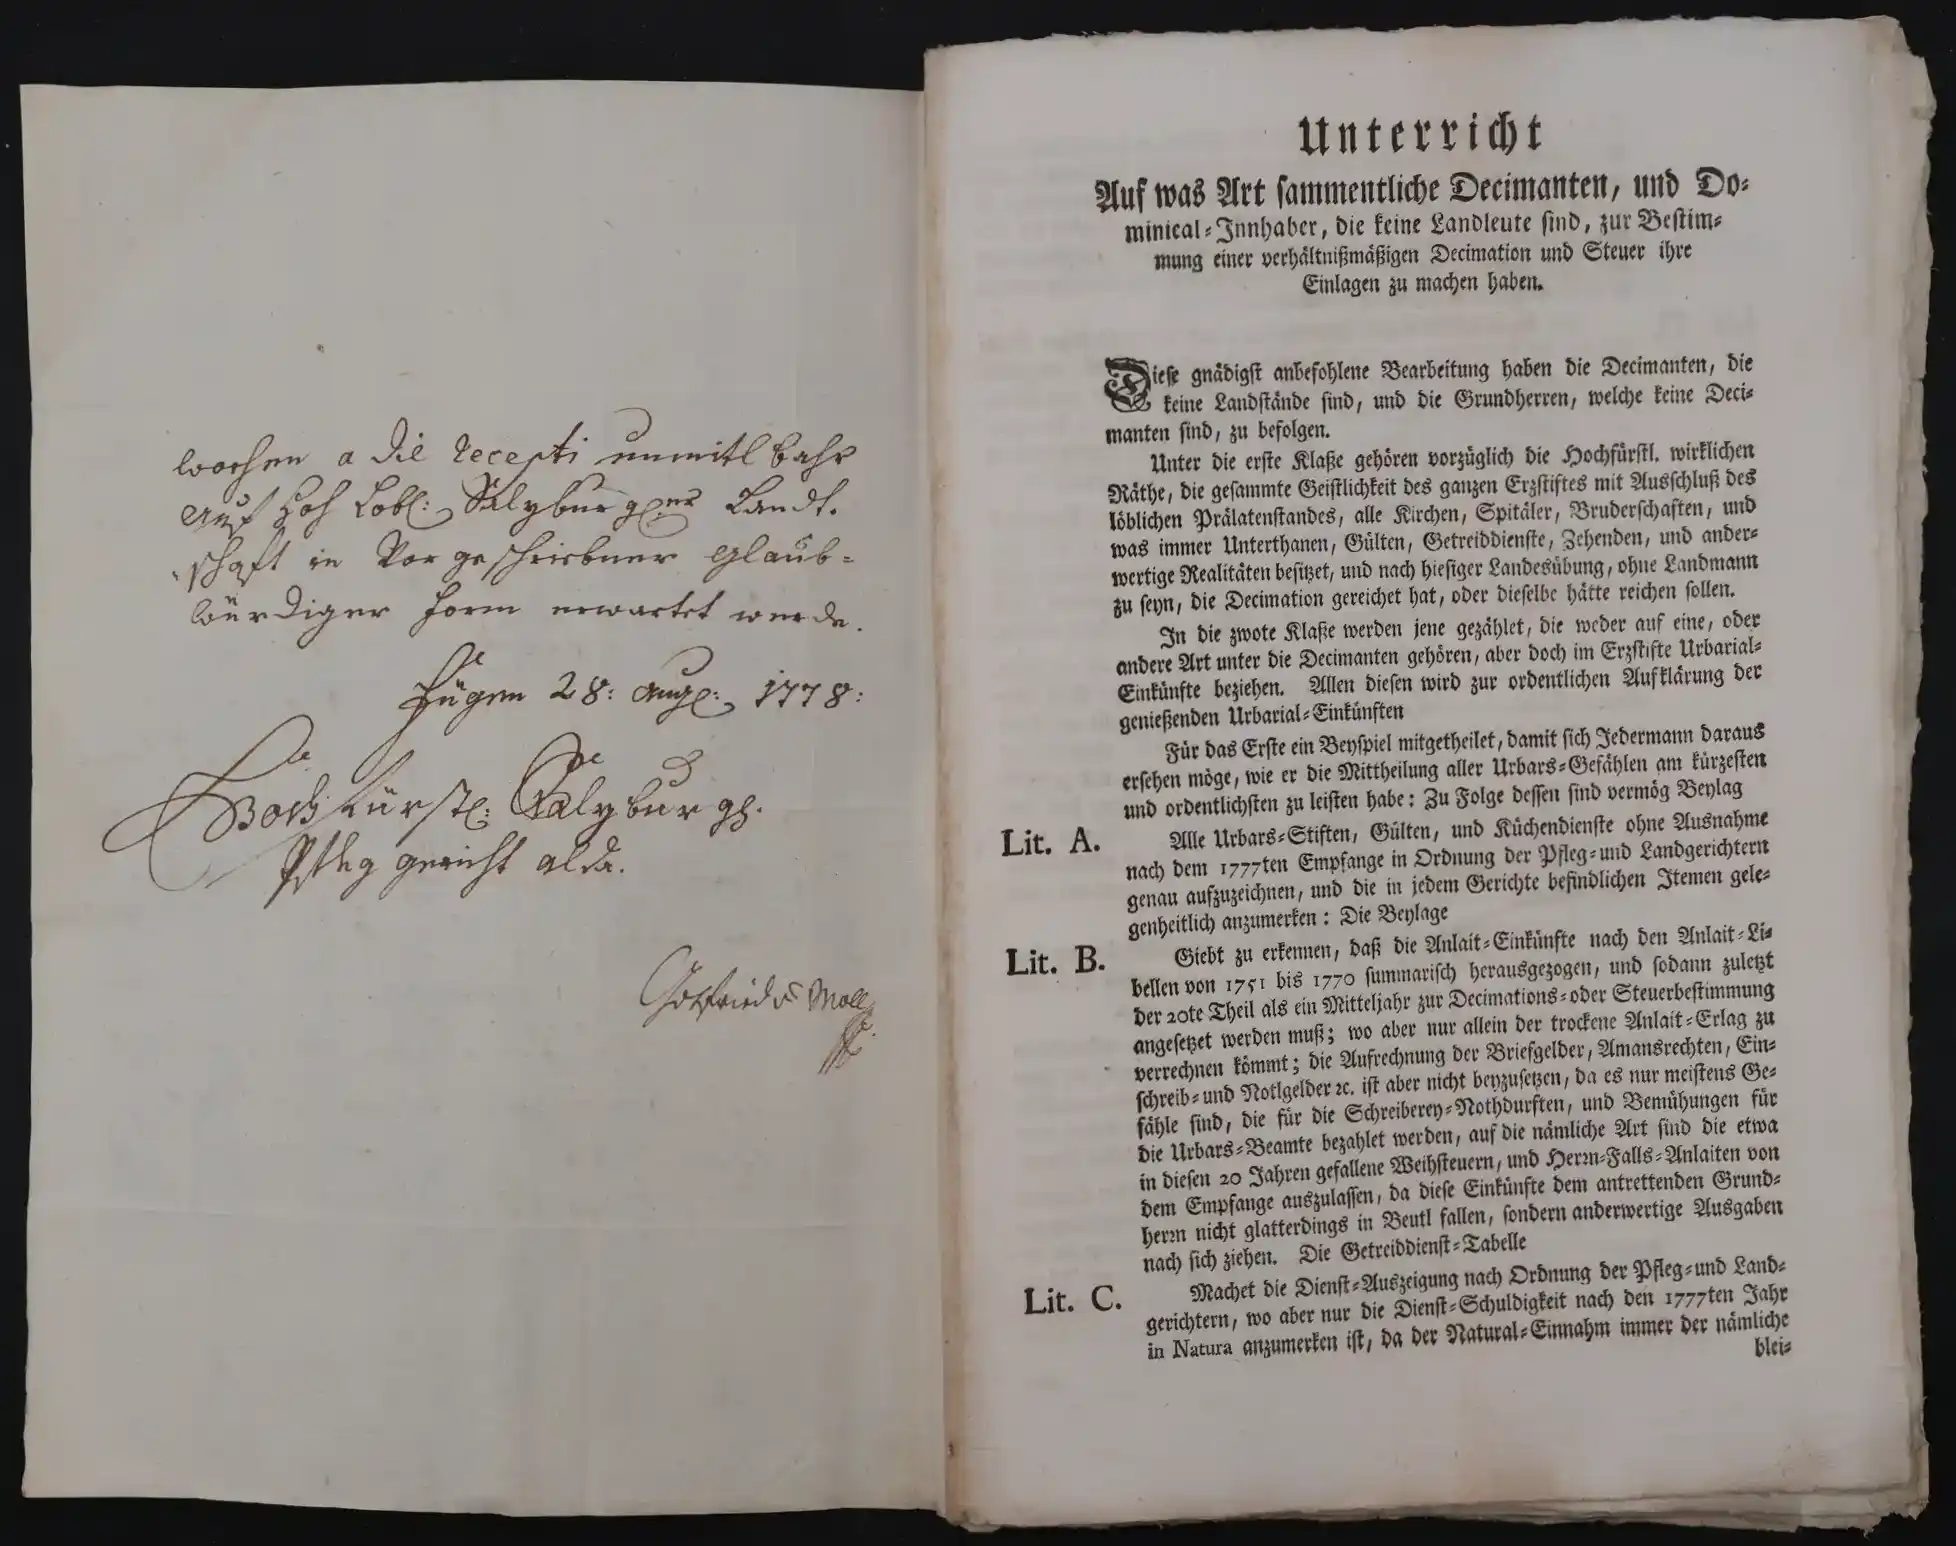 wochen a die recepti unmitlbahr
auf Hoch Löbl: Salzburgl: Landt.
schaft in Vorgeschribner Glaub=
würdiger Form erwartet werde.
Fügen 28: Aug: 1778:
Hochfürstl: Salzburgl.
Pfleg gericht alda.
Gottfried v Moll
Unterricht
Auf was Art sammentliche Decimanten, und Do=
minical=Innhaber, die keine Landleute sind, zur Bestim=
mung einer verhältnißmäßigen Decimation und Steuer ihre
Einlagen zu machen haben.
Diese gnädigst anbefohlene Bearbeitung haben die Decimanten, die
keine Landstände sind, und die Grundherren, welche keine Deci=
manten sind, zu befolgen.
Unter die erste Klaße gehören vorzüglich die Hochfürstl. wirklichen
Räthe, die gesammte Geistlichkeit des ganzen Erzstiftes mit Ausschluß des
löblichen Prälatenstandes, alle Kirchen, Spitäler, Bruderschaften, und
was immer Unterthanen, Gülten, Getreiddienste, Zehenden, und ander=
wertige Realitäten besitzet, und nach hiesiger Landesübung, ohne Landmann
zu seyn, die Decimation gereichet hat, oder dieselbe hätte reichen sollen.
In die zwote Klaße werden jene gezählet, die weder auf eine, oder
andere Art unter die Decimanten gehören, aber doch im Erzstifte Urbarial=
Einkünfte beziehen. Allen diesen wird zur ordentlichen Aufklärung der
genießenden Urbarial=Einkünften
Für das Erste ein Beyspiel mitgetheilet, damit sich Jedermann daraus
ersehen möge, wie er die Mittheilung aller Urbars=Gefählen am kürzesten
und ordentlichsten zu leisten habe: Zu Folge dessen sind vermög Beylag
Lit. A. Alle Urbars=Stiften, Gülten, und Küchendienste ohne Ausnahme
nach dem 1777ten Empfange in Ordnung der Pfleg=und Landgerichtern
genau aufzuzeichnen, und die in jedem Gerichte befindlichen Itemen gele=
genheitlich anzumerken: Die Beylage
Lit. B. Giebt zu erkennen, daß die Anlait=Einkünfte nach den Anlait=Li=
bellen von 1751 bis 1770 summarisch herausgezogen, und sodann zuletzt
der 20te Theil als ein Mitteljahr zur Decimations=oder Steuerbestimmung
angesetzet werden muß; wo aber nur allein der trockene Anlait=Erlag zu
verrechnen kömmt; die Aufrechnung der Briefgelder, Amansrechten, Ein=
schreib=und Notlgelder ꝛc. ist aber nicht beyzusetzen, da es nur meistens Ge=
fähle sind, die für die Schreiberey=Nothdurften, und Bemühungen für
die Urbars=Beamte bezahlet werden, auf die nämliche Art sind die etwa
in diesen 20 Jahren gefallene Weihsteuern, und Herrn=Falls=Anlaiten von
dem Empfange auszulassen, da diese Einkünfte dem antrettenden Grund=
herrn nicht glatterdings in Beutl fallen, sondern anderwertige Ausgaben
nach sich ziehen. Die Getreiddienst=Tabelle
Lit. C. Machet die Dienst=Auszeigung nach Ordnung der Pfleg=und Land=
gerichtern, wo aber nur die Dienst=Schuldigkeit nach den 1777ten Jahr
in Natura anzumerken ist, da der Natural=Einnahm immer der nämliche
blei=